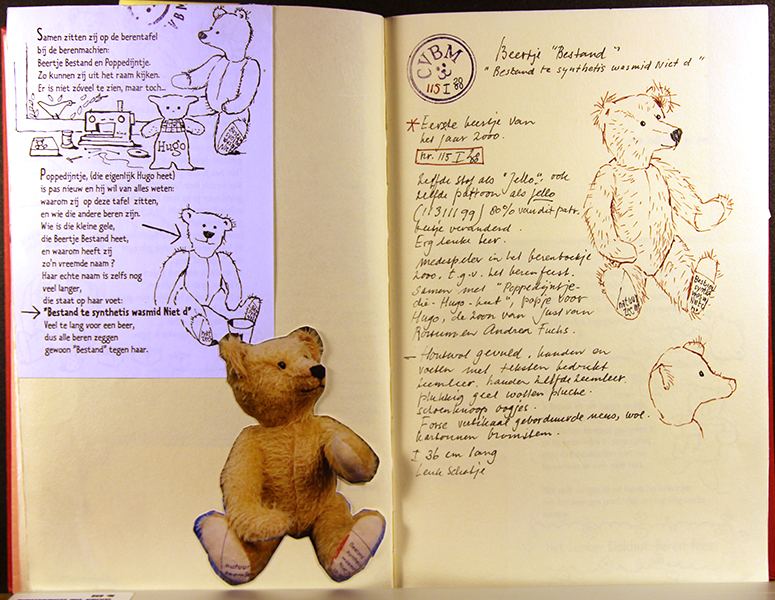 CVBM
Samen zitten zij op de berentafel
bij de berenmachien:
Beertje Bestand en Poppedijntje.
Zo kunnen zij uit het raam kijken.
Er is niet zóveel te zien, maar toch...
Hugo
Poppedijntje, (die eigenlijk Hugo heet)
is pas nieuw en hij wil van alles weten:
waarom zij op deze tafel zitten,
en wie die andere beren zijn.
Wie is die kleine gele,
die Beertje Bestand heet,
en waarom heeft zij
zo'n vreemde naam ?
Haar echte naam is zelfs nog
veel langer,
die staat op haar voet:
"Bestand te synthetis wasmid Niet d"
Veel te lang voor een beer,
dus alle beren zeggen
gewoon "Bestand" tegen haar.
natuur
CVBM
3
115 I 20/00
Beertje "Bestand"
"Bestand te synthetis wasmid Niet d"
* Eerste beertje van
het jaar 2000.
nr. 115 I 20/00
Zelfde stof als "Jello", ook
zelfde patroon als Jello
(113 III 99) 80% van dit patr.
beetje veranderd.
Erg leuke beer.
Medespeler in het berenboekje
2000, t.g.v. het berenfeest.
Samen met "Poppedijntje-
die-Hugo-heet", popje voor
Hugo, de zoon van Just van
Rossum en Andrea Fuchs.
– Houtwol gevuld, handen en
voeten met teksten bedrukt
leemleer. handen zelfde leemleer.
plukkig geel wollen pluche.
schoenknoop oogjes.
Forse vertikaal geborduurde neus, wol.
kartonnen bromstem.
I 36 cm lang
Leuk Schatje
natuur